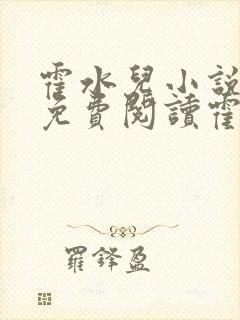 霍水兒小說
免費閱讀霍
羅鋒盈